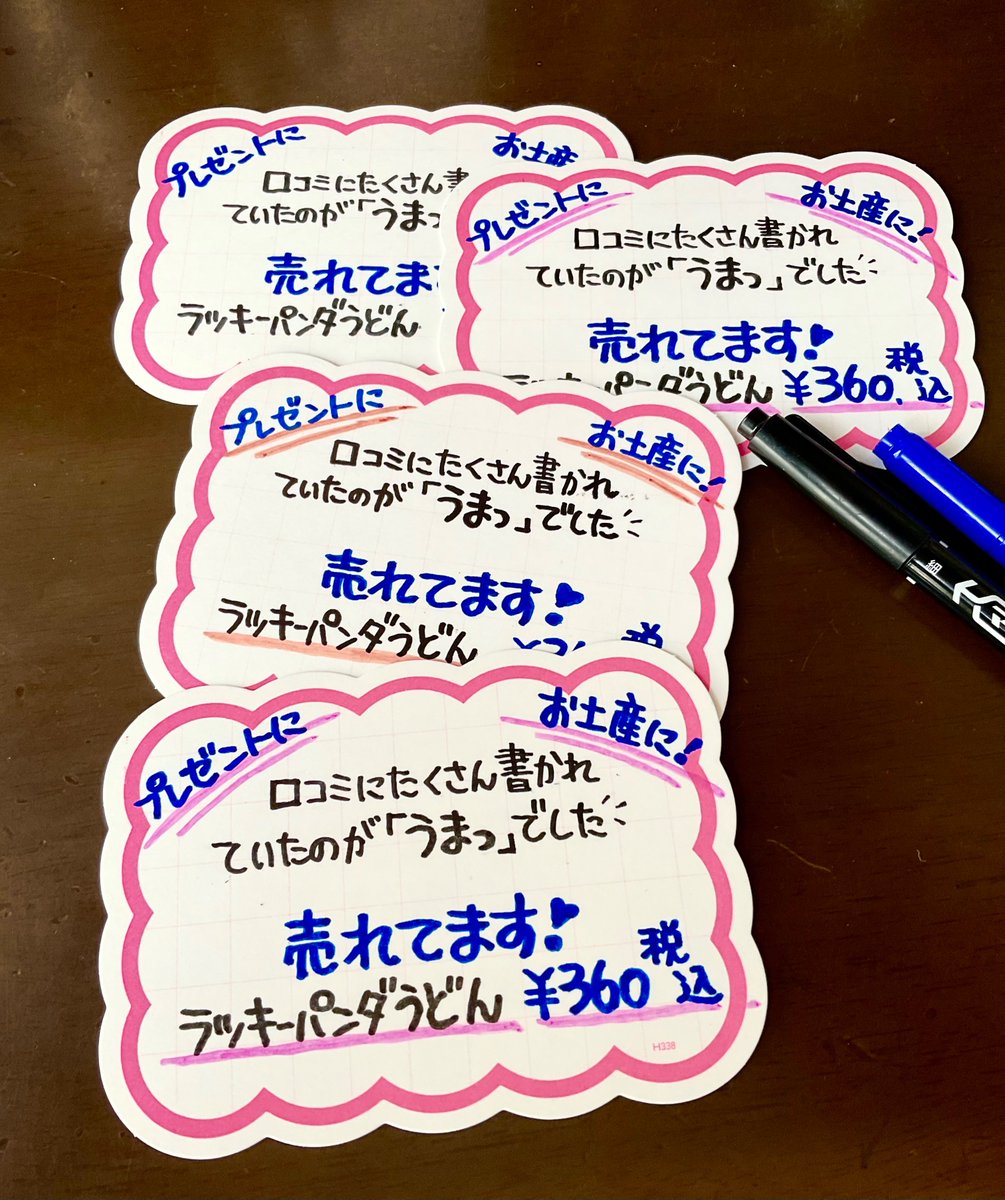 プレゼントに
お土産
口コミにたくさん書
ていたのが「うまっ
売れてま
ラッキーパンダうどん
プレゼントに
お土産に!
口コミにたくさん書かれ
ていたのが「うまっ」でした
売れてます!
ラッキーパンダうどん ¥360. 税込
プレゼントに
お土産に!
口コミにたくさん書かれ
ていたのが「うまっ」でした
売れてます!
ラッキーパンダうどん 税
プレゼントに
お土産に!
口コミにたくさん書かれ
ていたのが「うまっ」でした
売れてます!
ラッキーパンダうどん ¥360 税込
H338
細